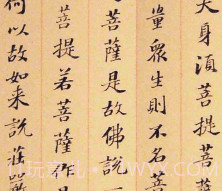 大身湏菩提菩
量眾生則不名菩
菩薩是故佛說一
菩提若菩薩作是
何以故如来說莊嚴